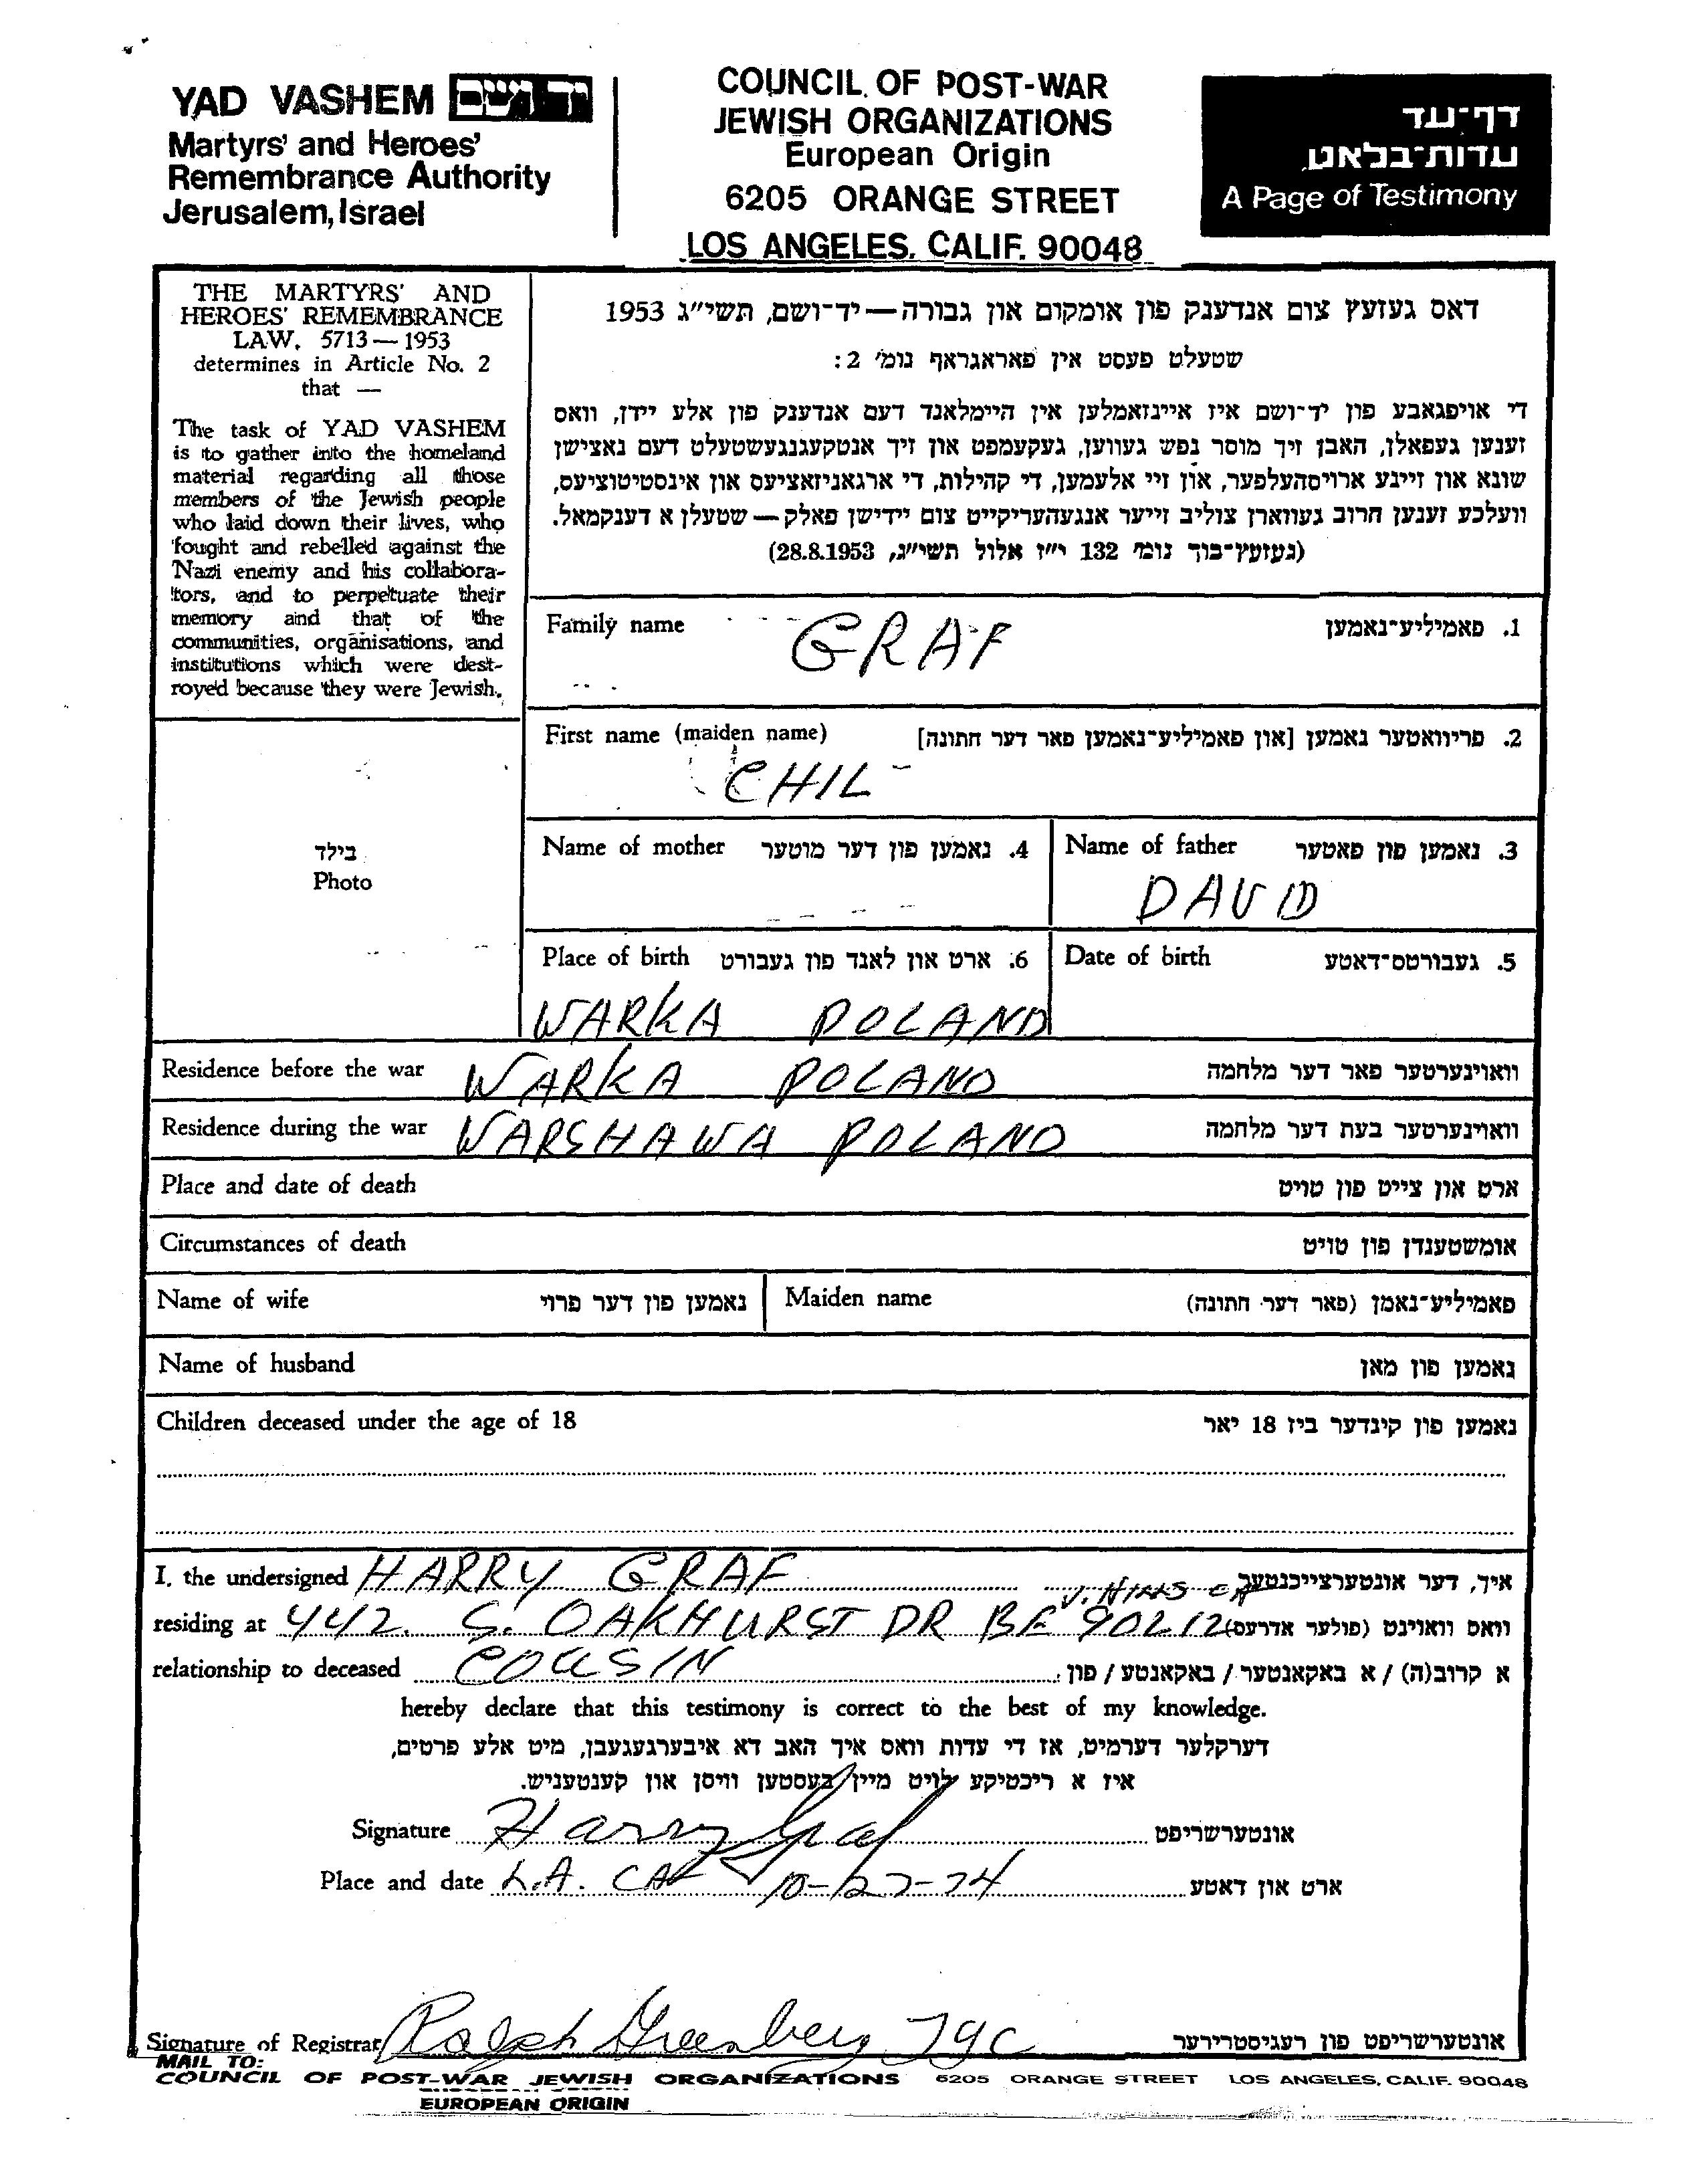 YAD VASHEM יד ושם
Martyrs' and Heroes'
Remembrance Authority
Jerusalem, Israel
COUNCIL OF POST-WAR
JEWISH ORGANIZATIONS
European Origin
6205 ORANGE STREET
LOS ANGELES, CALIF. 90048
דף-עד
עדות-בלאט
A Page of Testimony
THE MARTYRS' AND
HEROES' REMEMBRANCE
LAW, 5713—1953
determines in Article No. 2
that —
The task of YAD VASHEM
is to gather into the homeland
material regarding all those
members of the Jewish people
who laid down their lives, who
fought and rebelled against the
Nazi enemy and his collabora-
tors, and to perpetuate their
memory and that of the
communities, organisations, and
institutions which were dest-
royed because they were Jewish.
דאס געזעץ צום אנדענק פון אומקום און גבורה — יד-ושם, תשי"ג 1953
שטעלט פעסט אין פאראגראף נומ' 2:
די אויפגאבע פון יד-ושם איז איינזאמלען אין היימלאנד דעם אנדענק פון אלע יידן, וואס
זענען געפאלן, האבן זיך מוסר נפש געווען, געקעמפט און זיך אנטקעגנגעשטעלט דעם נאצישן
שונא און זיינע ארויסהעלפער, און זיי אלעמען, די קהילות, די ארגאניזאציעס און אינסטיטוציעס,
וועלכע זענען חרוב געווארן צוליב זייער אנגעהעריקייט צום יידישן פאלק — שטעלן א דענקמאל.
(געזעץ-בוך נומ' 132 י"ז אלול תשי"ג, 28.8.1953)
Family name GRAF 1. פאמיליע-נאמען
First name (maiden name) 2. פריוואטער נאמען [און פאמיליע-נאמען פאר דער חתונה]
CHIL
בילד
Photo
Name of mother 4. נאמען פון דער מוטער
Name of father 3. נאמען פון פאטער
DAVID
Place of birth 6. ארט און לאנד פון געבורט
WARKA POLAND
Date of birth 5. געבורטס-דאטע
Residence before the war WARKA POLAND וואוינערטער פאר דער מלחמה
Residence during the war WARSHAWA POLAND וואוינערטער בעת דער מלחמה
Place and date of death ארט און צייט פון טויט
Circumstances of death אומשטענדן פון טויט
Name of wife נאמען פון דער פרוי Maiden name פאמיליע-נאמן (פאר דער חתונה)
Name of husband נאמען פון מאן
Children deceased under the age of 18 נאמען פון קינדער ביז 18 יאר
I, the undersigned HARRY GRAF איך, דער אונטערצייכנטער
residing at 442 S. OAKHURST DR 90212 וואס וואוינט (פולער אדרעס)
relationship to deceased COUSIN א קרוב(ה) / א באקאנטער / באקאנטע / פון:
hereby declare that this testimony is correct to the best of my knowledge.
דערקלער דערמיט, אז די עדות וואס איך האב דא איבערגעגעבן, מיט אלע פרטים,
איז א ריכטיקע לויט מיין בעסטען וויסן און קענטעניש.
Signature Harry Graf אונטערשריפט
Place and date L.A. CAL 10-27-74 ארט און דאטע
Signature of Registrar Ralph Greenberg אונטערשריפט פון רעגיסטרירער
MAIL TO:
COUNCIL OF POST-WAR JEWISH ORGANIZATIONS 6205 ORANGE STREET LOS ANGELES, CALIF. 90048
EUROPEAN ORIGIN